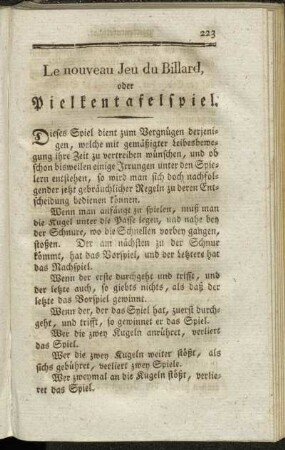 223
Le nouveau Jeu du Billard,
oder
Pielkentafelspiel.
Dieses Spiel dient zum Vergnügen derjeni-
gen, welche mit gemäßigter Leibesbewe-
gung ihre Zeit zu vertreiben wünschen, und ob
schon bisweilen einige Irrungen unter den Spie-
lern entstehen, so wird man sich doch nachfol-
gender jetzt gebräuchlicher Regeln zu deren Ent-
scheidung bedienen können.
Wenn man anfängt zu spielen, muß man
die Kugel unter die Passe legen, und nahe bey
der Schnure, wo die Schnellen vorbey gangen,
stoßen. Der am nächsten zu der Schnur
kömmt, hat das Vorspiel, und der letztere hat
das Nachspiel.
Wenn der erste durchgeht und trifft, und
der letzte auch, so giebts nichts, als daß der
letzte das Vorspiel gewinnt.
Wenn der, der das Spiel hat, zuerst durch-
geht, und trifft, so gewinnet er das Spiel.
Wer die zwey Kugeln anrührt, verliert
das Spiel.
Wer die zwey Kugeln weiter stößt, als
sichs gebühret, verliert zwey Spiele.
Wer zweymal an die Kugeln stößt, verlie-
ret das Spiel.